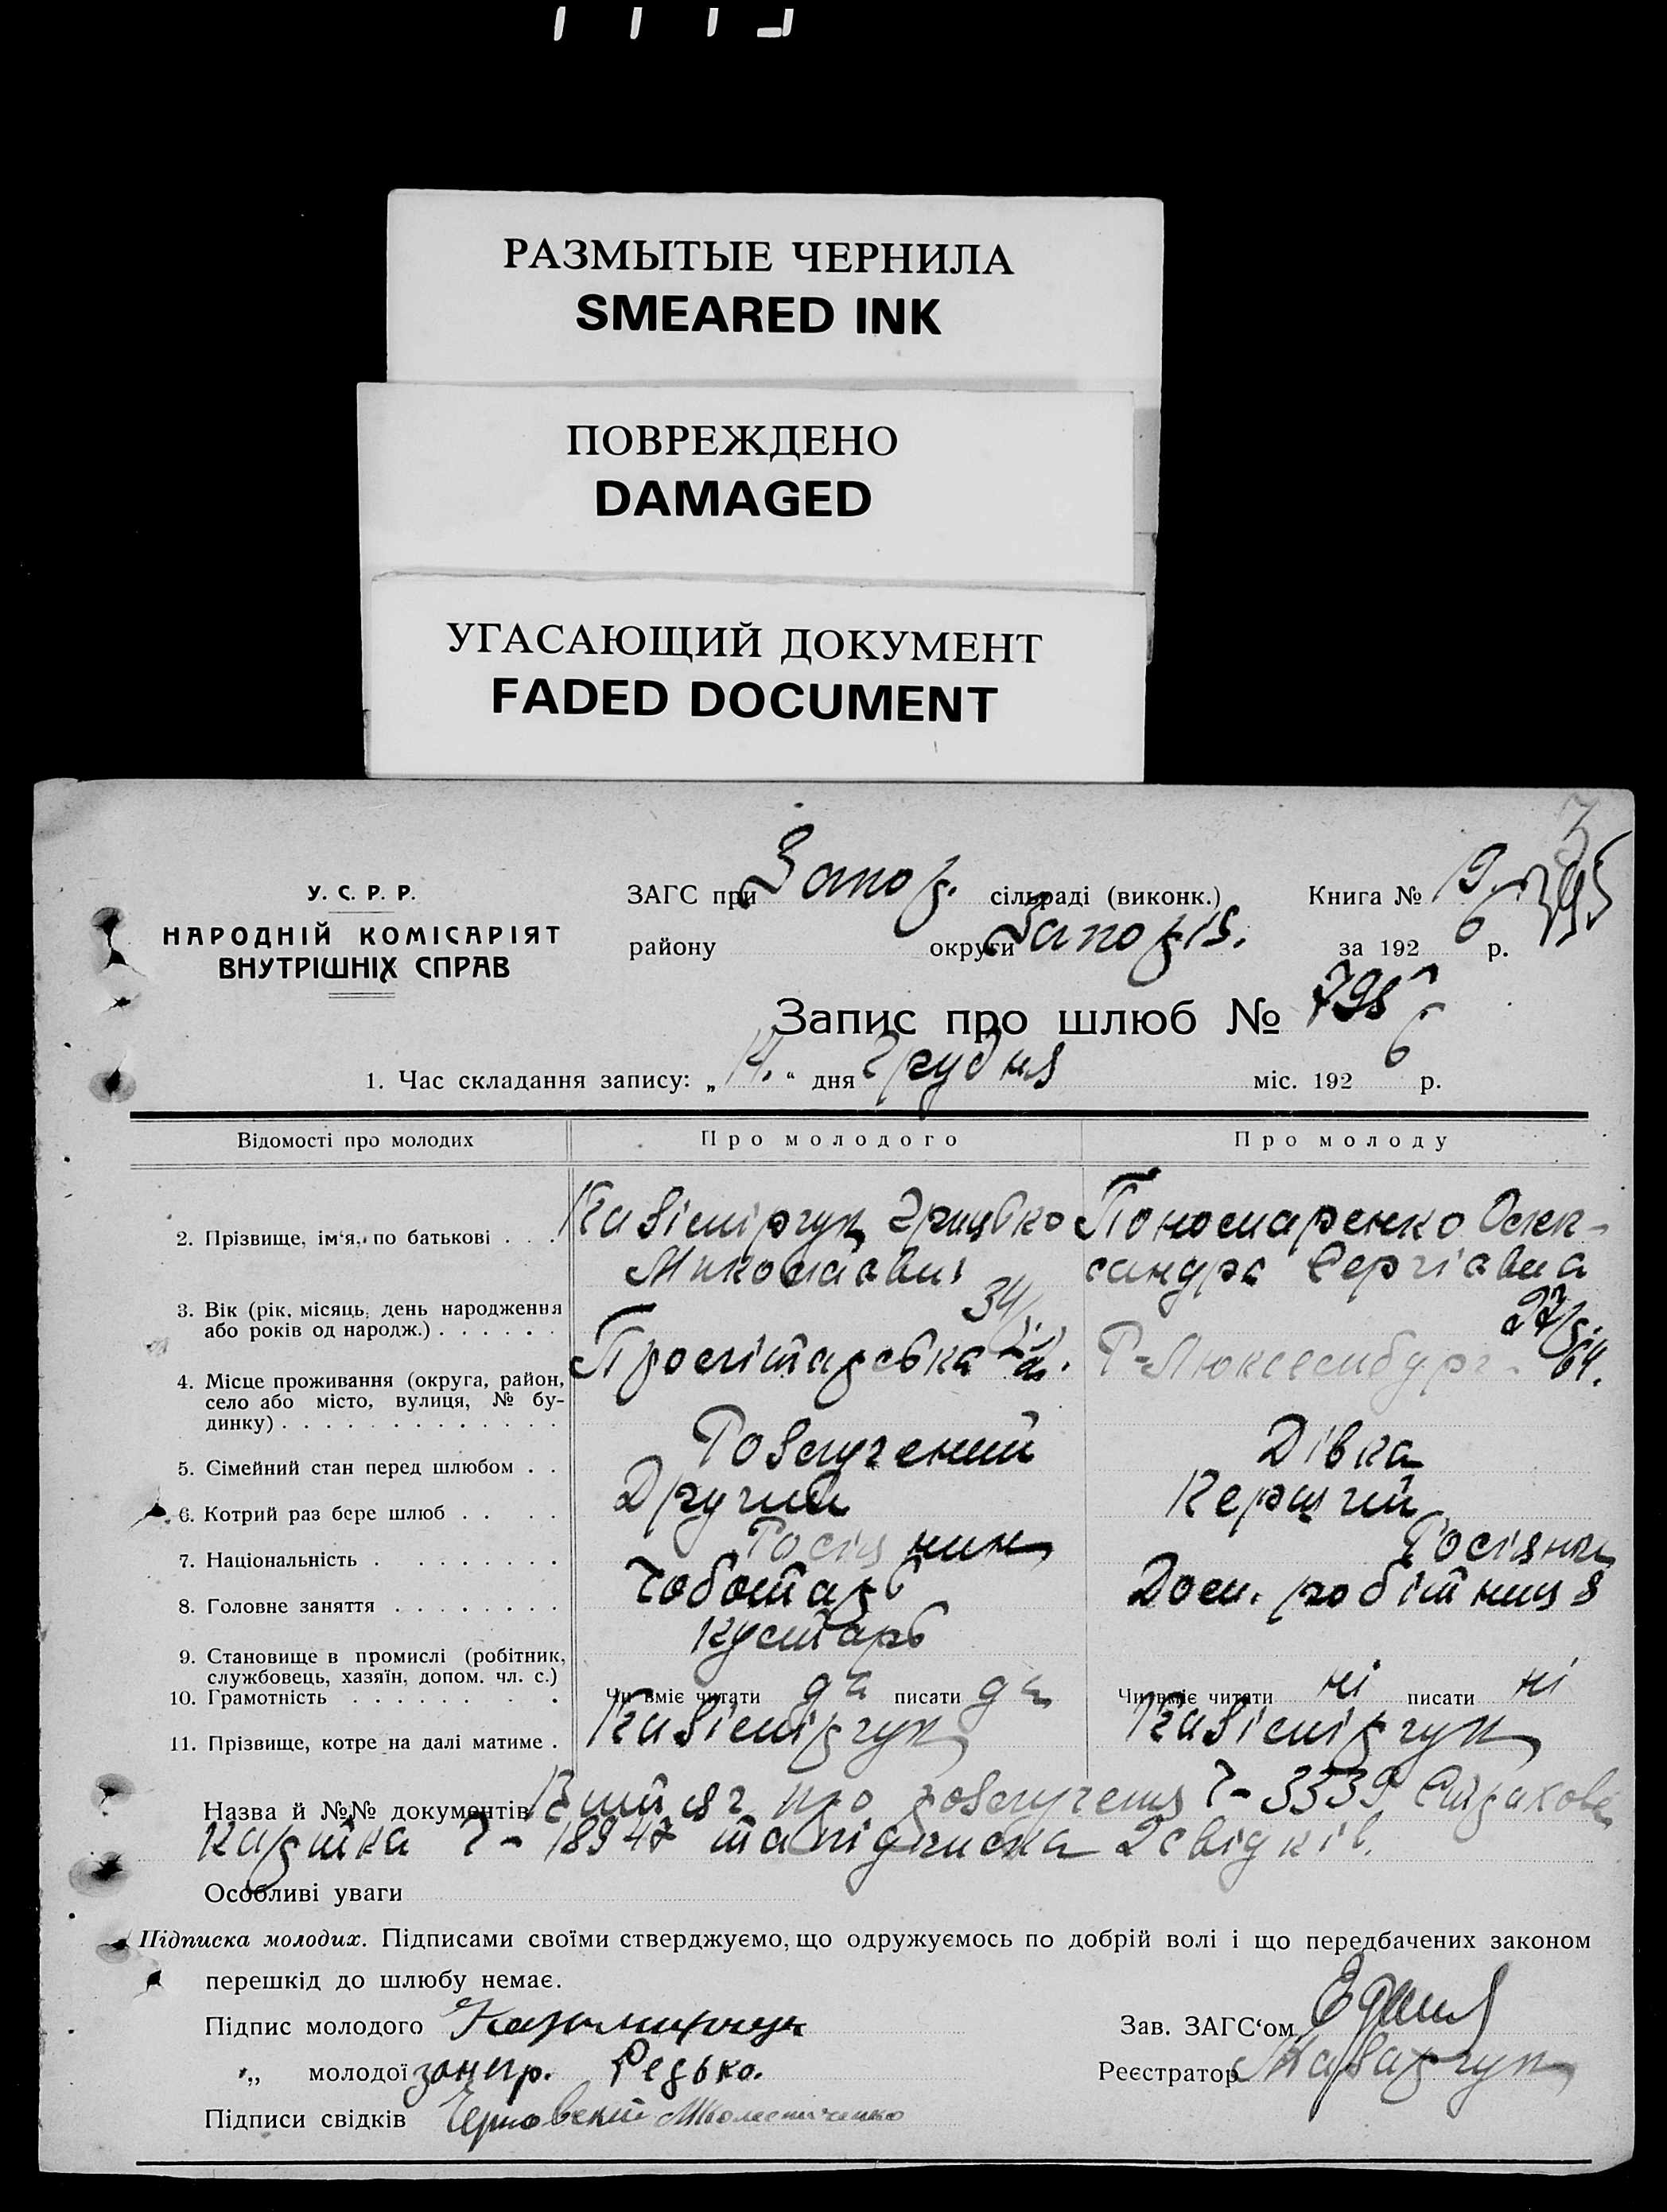 РАЗМЫТЫЕ ЧЕРНИЛА
SMEARED INK
ПОВРЕЖДЕНО
DAMAGED
УГАСАЮЩИЙ ДОКУМЕНТ
FADED DOCUMENT
У. С. Р. Р.
НАРОДНІЙ КОМІСАРІЯТ
ВНУТРІШНІХ СПРАВ
ЗАГС при Запор. сільраді (виконк.) Книга № 19
району округи Запоріз. за 1926 р.
Запис про шлюб № 795
1. Час складання запису: „14.“ дня Грудня міс. 1926 р.
Відомості про молодих Про молодого Про молоду
2. Прізвище, ім‘я, по батькові . . . Казімірчук Грицько Пономаренко Олек-
Миколаєвич сандра Сергіевна
3. Вік (рік, місяць, день народження 34 27
або років од народж.) . . . . . .
4. Місце проживання (округа, район, Пролітарська Р-Люксембург 64.
село або місто, вулиця, № бу-
динку) . . . . . . . . . . . . .
5. Сімейний стан перед шлюбом . . Розлучений Дівка
6. Котрий раз бере шлюб . . . . Другий Перший
7. Національність . . . . . . . . Росіянин Росіянка
8. Головне заняття . . . . . . . . Чоботарь Дом. робітниця
9. Становище в промислі (робітник, Кустарь
службовець, хазяїн, допом. чл. с.)
10. Грамотність . . . . . . . . Чи вміє читати да писати да Чи вміє читати ні писати ні
11. Прізвище, котре на далі матиме . Казімірчук Казімірчук
Назва й №№ документів Витяг про розлучення Ч-3339 Страхова
картка Ч-18947 та підписка 2 свідків.
Особливі уваги
Підписка молодих. Підписами своїми стверджуємо, що одружуємось по добрій волі і що передбачених законом
перешкід до шлюбу немає.
Підпис молодого Казимирчук Зав. ЗАГС‘ом
„ молодої за негр. Редько. Реєстратор
Підписи свідків